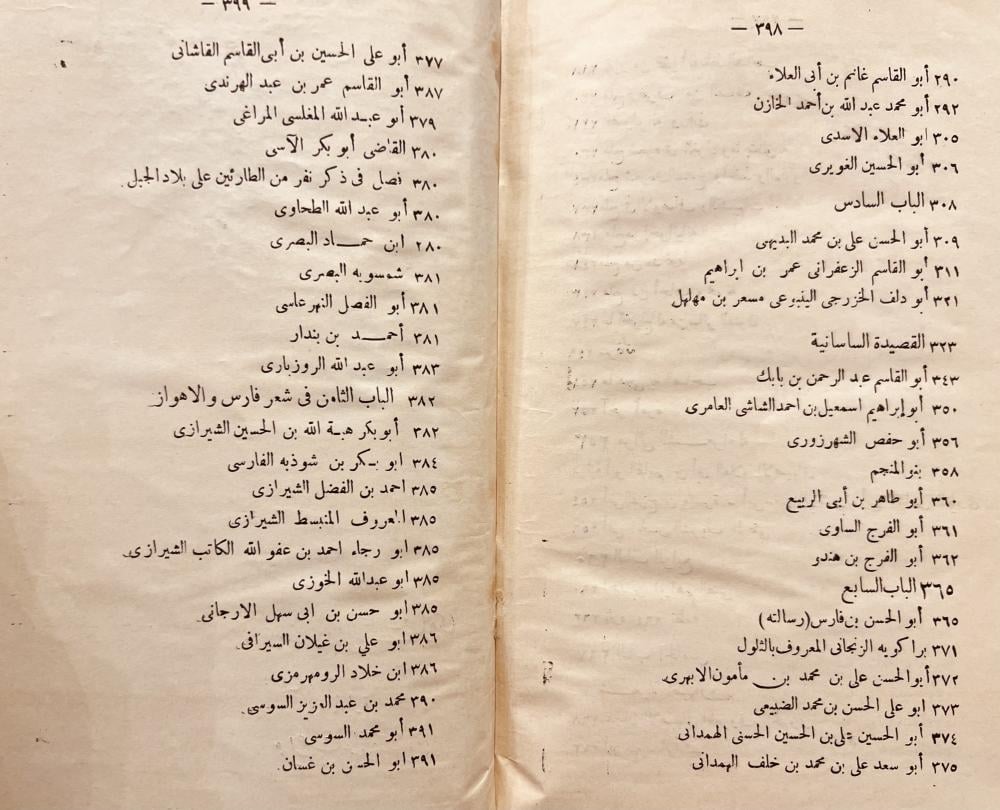 — ٣٩٨ —
٢٩٠ أبو القاسم غانم بن أبى العلاء
٢٩٢ أبو محمد عبد الله بن أحمد الخازن
٣٠٥ ابو العلاء الاسدى
٣٠٦ أبو الحسين الغويرى
٣٠٨ الباب السادس
٣٠٩ أبو الحسن على بن محمد البديهى
٣١١ أبو القاسم الزعفرانى عمر بن ابراهيم
٣٢١ أبو دلف الخزرجى الينبوعى مسعر بن مهلهل
٣٢٣ القصيدة الساسانية
٣٤٣ أبو القاسم عبد الرحمن بن بابك
٣٥٠ أبو إبراهيم اسمعيل بن احمد الشاشى العامرى
٣٥٦ أبو حفص الشهرزورى
٣٥٨ بنو المنجم
٣٦٠ أبو طاهر بن أبى الربيع
٣٦١ أبو الفرج الساوى
٣٦٢ أبو الفرج بن هندو
٣٦٥ الباب السابع
٣٦٥ أبو الحسن بن فارس (رسالته)
٣٧١ براكويه الزنجانى المعروف بالثلول
٣٧٢ أبوالحسن على بن محمد بن مأمون الابهرى
٣٧٣ ابو على الحسن بن محمد الضبيعى
٣٧٤ أبو الحسين على بن الحسين الحسنى الهمدانى
٣٧٥ أبو سعد على بن محمد بن خلف الهمدانى
— ٣٩٩ —
٣٧٧ أبو على الحسين بن أبى القاسم القاشانى
٣٨٧ أبو القاسم عمر بن عبد الهرندى
٣٧٩ أبو عبد الله المغلسى المراغى
٣٨٠ القاضى أبو بكر الآسى
٣٨٠ فصل فى ذكر نفر من الطارئين على بلاد الجبل
٣٨٠ أبو عبد الله الطحاوى
٢٨٠ ابن حمـاد البصرى
٣٨١ شمسويه البصرى
٣٨١ أبو الفصل النهرعاسى
٣٨١ أحمـد بن بندار
٣٨٣ أبو عبد الله الروزبارى
٣٨٢ الباب الثامن فى شعر فارس والاهواز
٣٨٢ أبو بكر هبة الله بن الحسين الشيرازى
٣٨٤ ابو بكر بن شوذبه الفارسى
٣٨٥ احمد بن الفضل الشيرازى
٣٨٥ المعروف المنبسط الشيرازى
٣٨٥ ابو رجاء احمد بن عفو الله الكاتب الشيرازى
٣٨٥ ابو عبدالله الخوزى
٣٨٥ ابو حسن بن ابى سهل الارجانى
٣٨٦ ابو علي بن غيلان السيرافى
٣٨٦ ابن خلاد الرومهرمزى
٣٩٠ محمد بن عبد العزيز السوسى
٣٩١ أبو محمد السوسى
٣٩١ ابو الحسن بن غسان